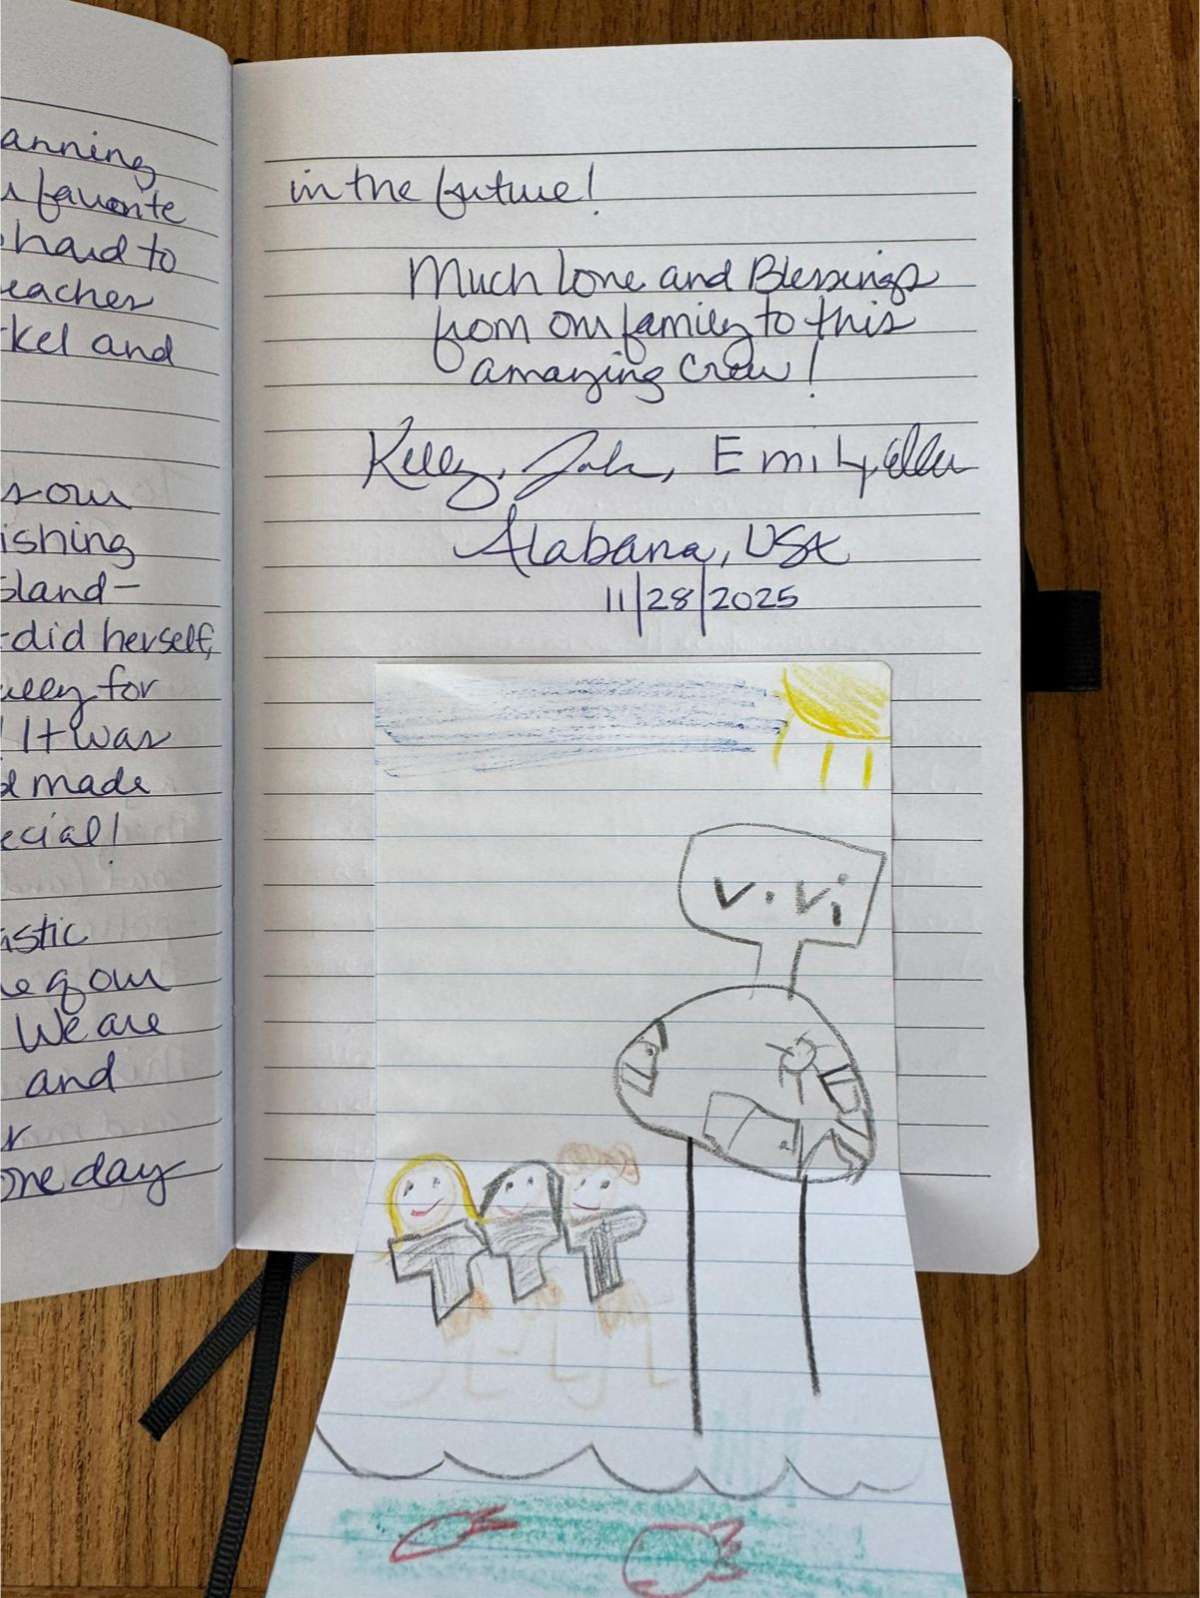 anning
favorite
hard to
eaches
kel and
s our
ishing
sland-
did herself,
for
! It was
d made
ecial!
astic
e of our
We are
and
r
one day
in the future!
Much love and Blessings
from our family to this
amazing crew!
Kelly, Jake, Emily, Ellen
Alabama, USA
11/28/2025
ViVi